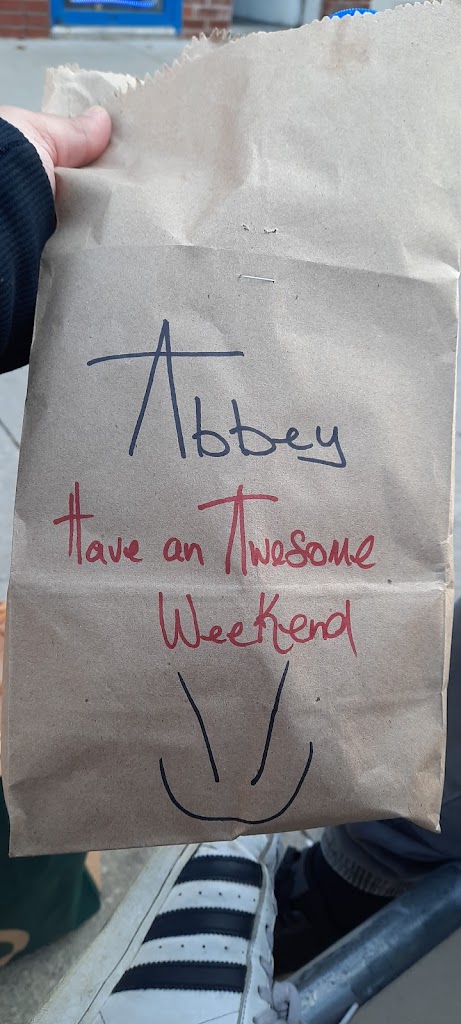 Abbey
Have an Awesome
Weekend